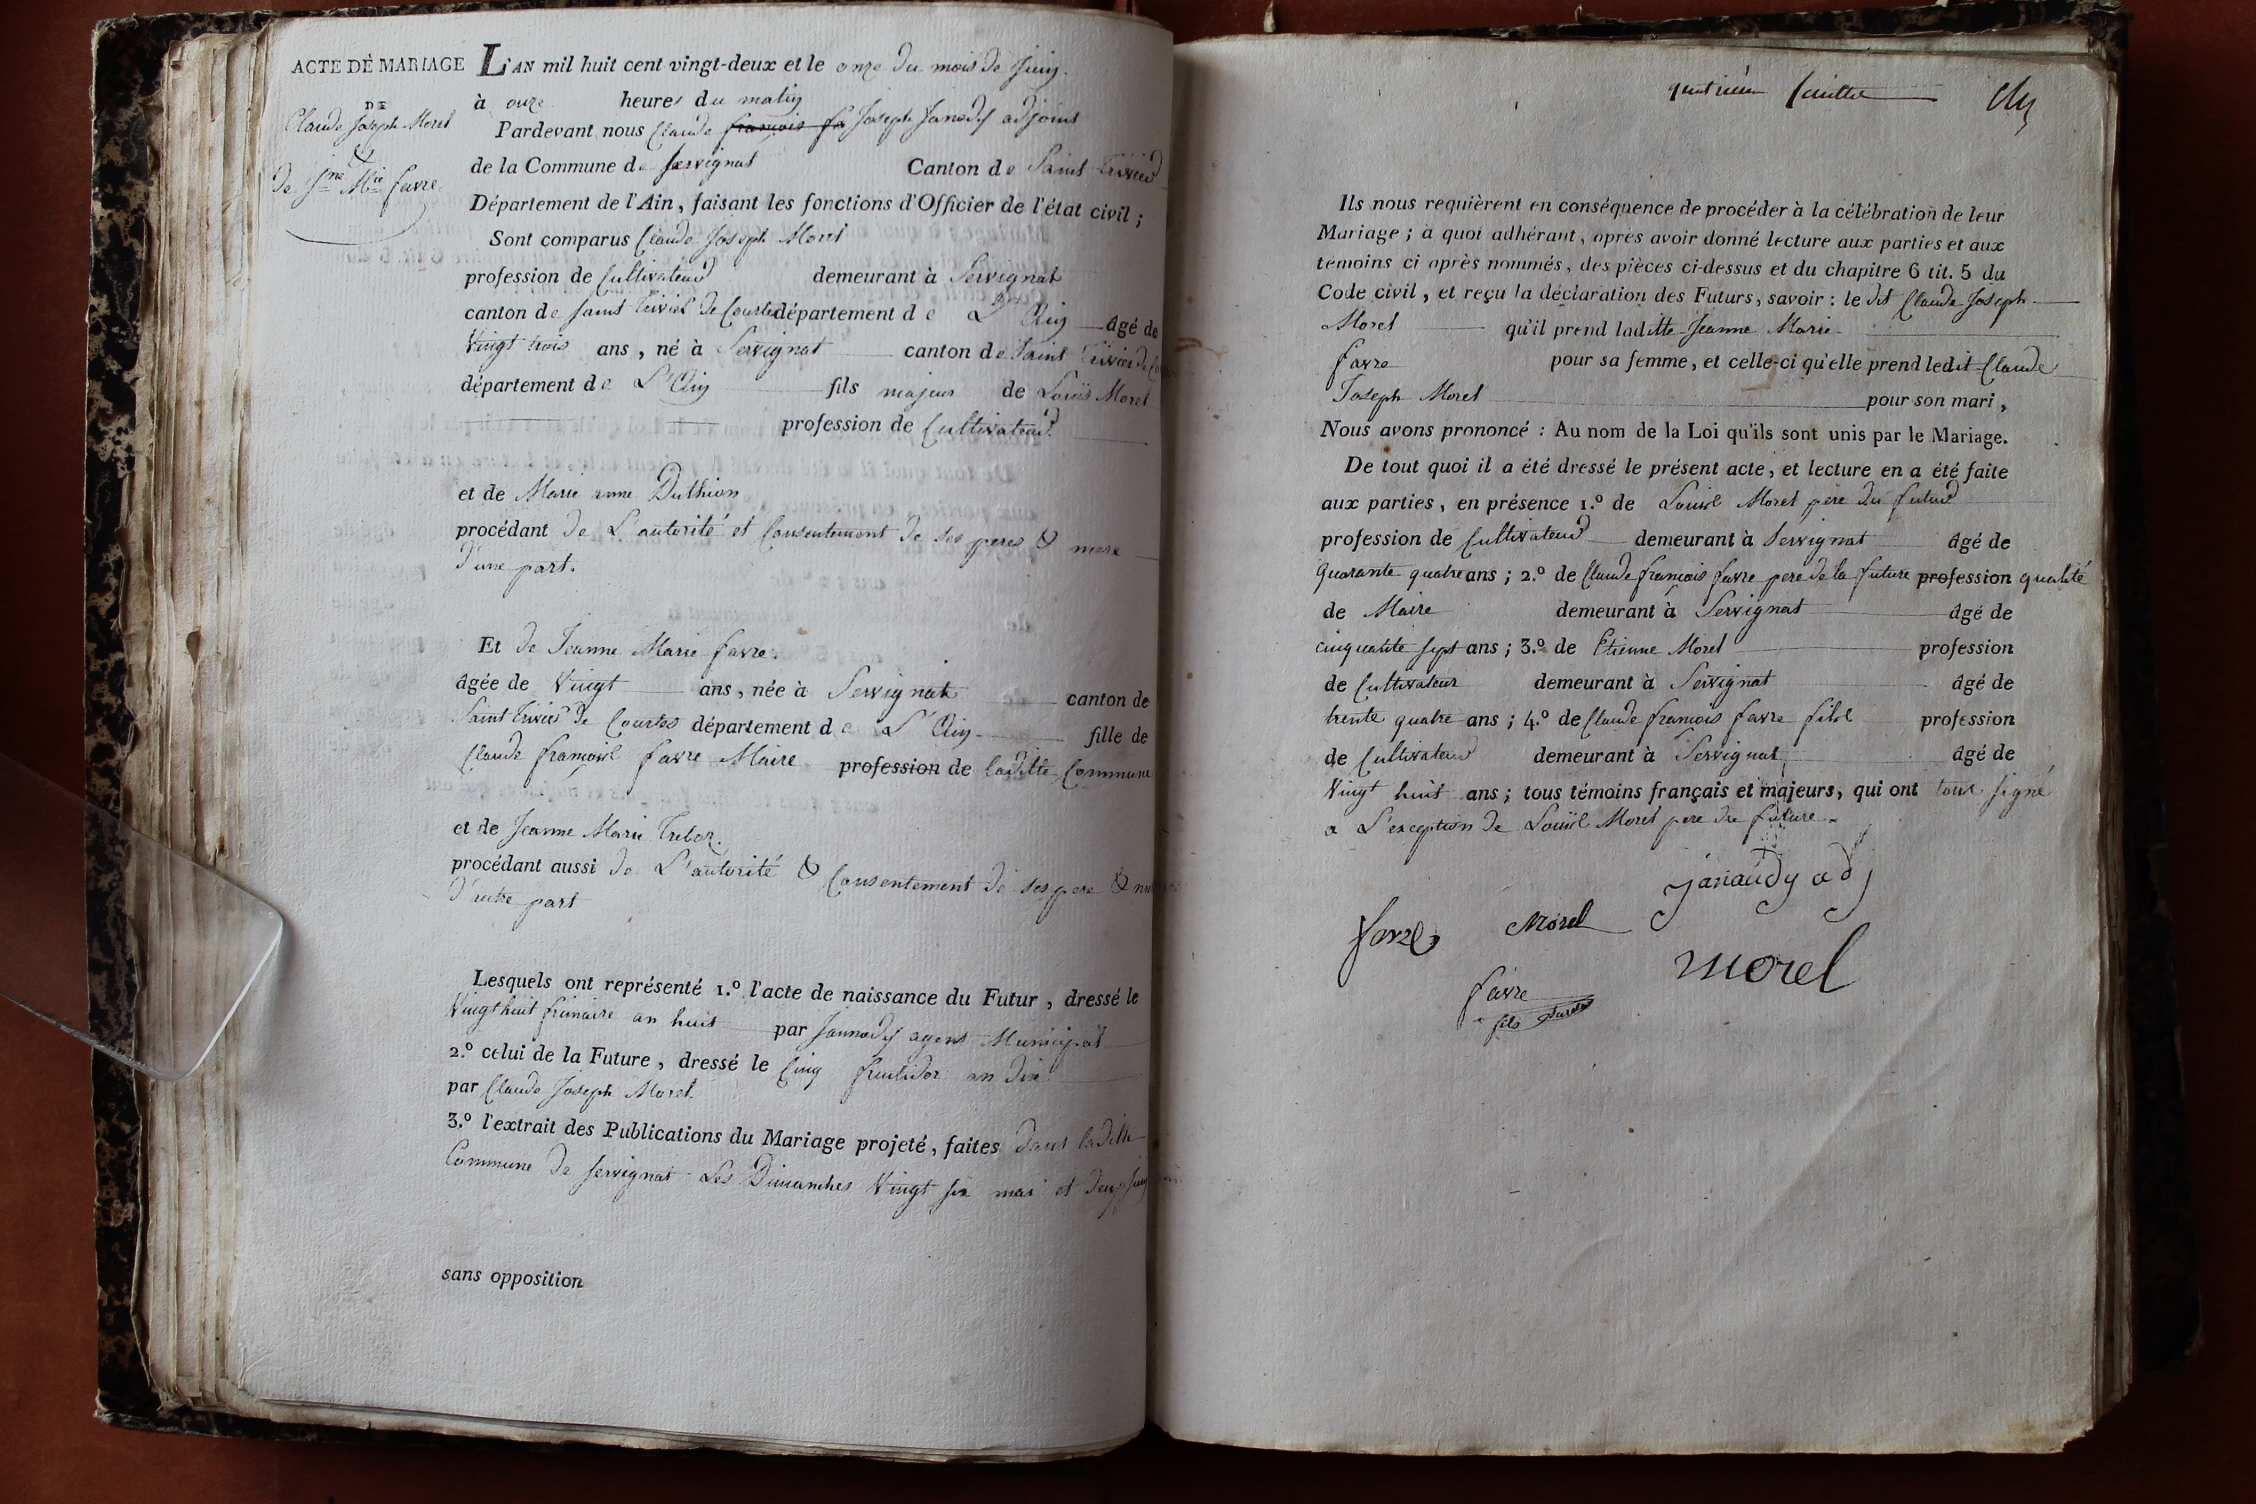 ACTE DE MARIAGE
DE
Claude Joseph Morel
&
de Jne Mie favre
L'AN mil huit cent vingt-deux et le onze du mois de Juin
à onze heures du matin
Pardevant nous Claude françois fa Joseph Janody adjoint
de la Commune de Servignat Canton de Saint Trivier
Département de l'Ain, faisant les fonctions d'Officier de l'état civil ;
Sont comparus Claude Joseph Morel
profession de Cultivateur demeurant à Servignat
canton de Saint Trivier de Courtes département de L'Ain âgé de
Vingt trois ans, né à Servignat canton de Saint Trivier de
département de L'Ain fils majeur de Louis Morel
profession de Cultivateur
et de Marie anne Duthion
procédant de L'autorité et Consentement de ses peres & mere
d'une part.
Et de Jeanne Marie favre.
âgée de Vingt ans, née à Servignat canton de
Saint Trivier de Courtes département de L'Ain fille de
Claude françois favre Maire profession de laditte Commune
et de Jeanne Marie
procédant aussi de L'autorité & Consentement de ses pere &
d'autre part
Lesquels ont représenté 1.º l'acte de naissance du Futur, dressé le
Vingt huit frimaire an huit par Jannody agent Municipal
2.º celui de la Future, dressé le Cinq fructidor an dix
par Claude Joseph Morel
3.º l'extrait des Publications du Mariage projeté, faites dans laditte
Commune de Servignat Les Dimanches Vingt six mai et deux juin
sans opposition
feuillet
Ils nous requièrent en conséquence de procéder à la célébration de leur
Mariage ; à quoi adhérant, après avoir donné lecture aux parties et aux
témoins ci après nommés, des pièces ci-dessus et du chapitre 6 tit. 5 du
Code civil, et reçu la déclaration des Futurs, savoir : le dit Claude Joseph
Morel qu'il prend laditte Jeanne Marie
favre pour sa femme, et celle-ci qu'elle prend ledit Claude
Joseph Morel pour son mari,
Nous avons prononcé : Au nom de la Loi qu'ils sont unis par le Mariage.
De tout quoi il a été dressé le présent acte, et lecture en a été faite
aux parties, en présence 1.º de Louis Morel pere du futur
profession de Cultivateur demeurant à Servignat âgé de
quarante quatre ans ; 2.º de Claude françois favre pere de la future profession qualité
de Maire demeurant à Servignat âgé de
cinquante sept ans ; 3.º de Etienne Morel profession
de Cultivateur demeurant à Servignat âgé de
trente quatre ans ; 4.º de Claude francois favre fils profession
de Cultivateur demeurant à Servignat âgé de
Vingt huit ans ; tous témoins français et majeurs, qui ont tous signé
a L'exception de Louis Morel pere du future
janaudy adj
favre
Morel
morel
favre
fils